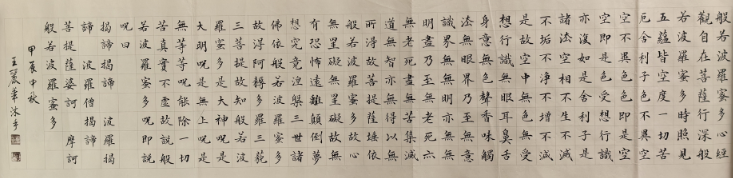 般若波羅蜜多心經
觀自在菩薩行深般
若波羅蜜多時照見
五蘊皆空度一切苦
厄舍利子色不異空
空不異色色即是空
空即是色受想行識
亦復如是舍利子是
諸法空相不生不滅
不垢不淨不增不減
是故空中無色無受
想行識無眼耳鼻舌
身意無色聲香味觸
法無眼界乃至無意
識界無無明亦無無
明盡乃至無老死亦
無老死盡無苦集滅
道無智亦無得以無
所得故菩提薩埵依
般若波羅蜜多故心
無罣礙無罣礙故無
有恐怖遠離顛倒夢
想究竟涅槃三世諸
佛依般若波羅蜜多
故得阿耨多羅三藐
三菩提故知般若波
羅蜜多是大神呪是
大明呪是無上呪是
無等等呪能除一切
苦真實不虛故說般
若波羅蜜多呪即說
呪曰
揭諦揭諦 波羅揭
諦 波羅僧揭諦
菩提薩婆訶 摩訶
般若波羅蜜多
甲辰中秋
王 華沐手